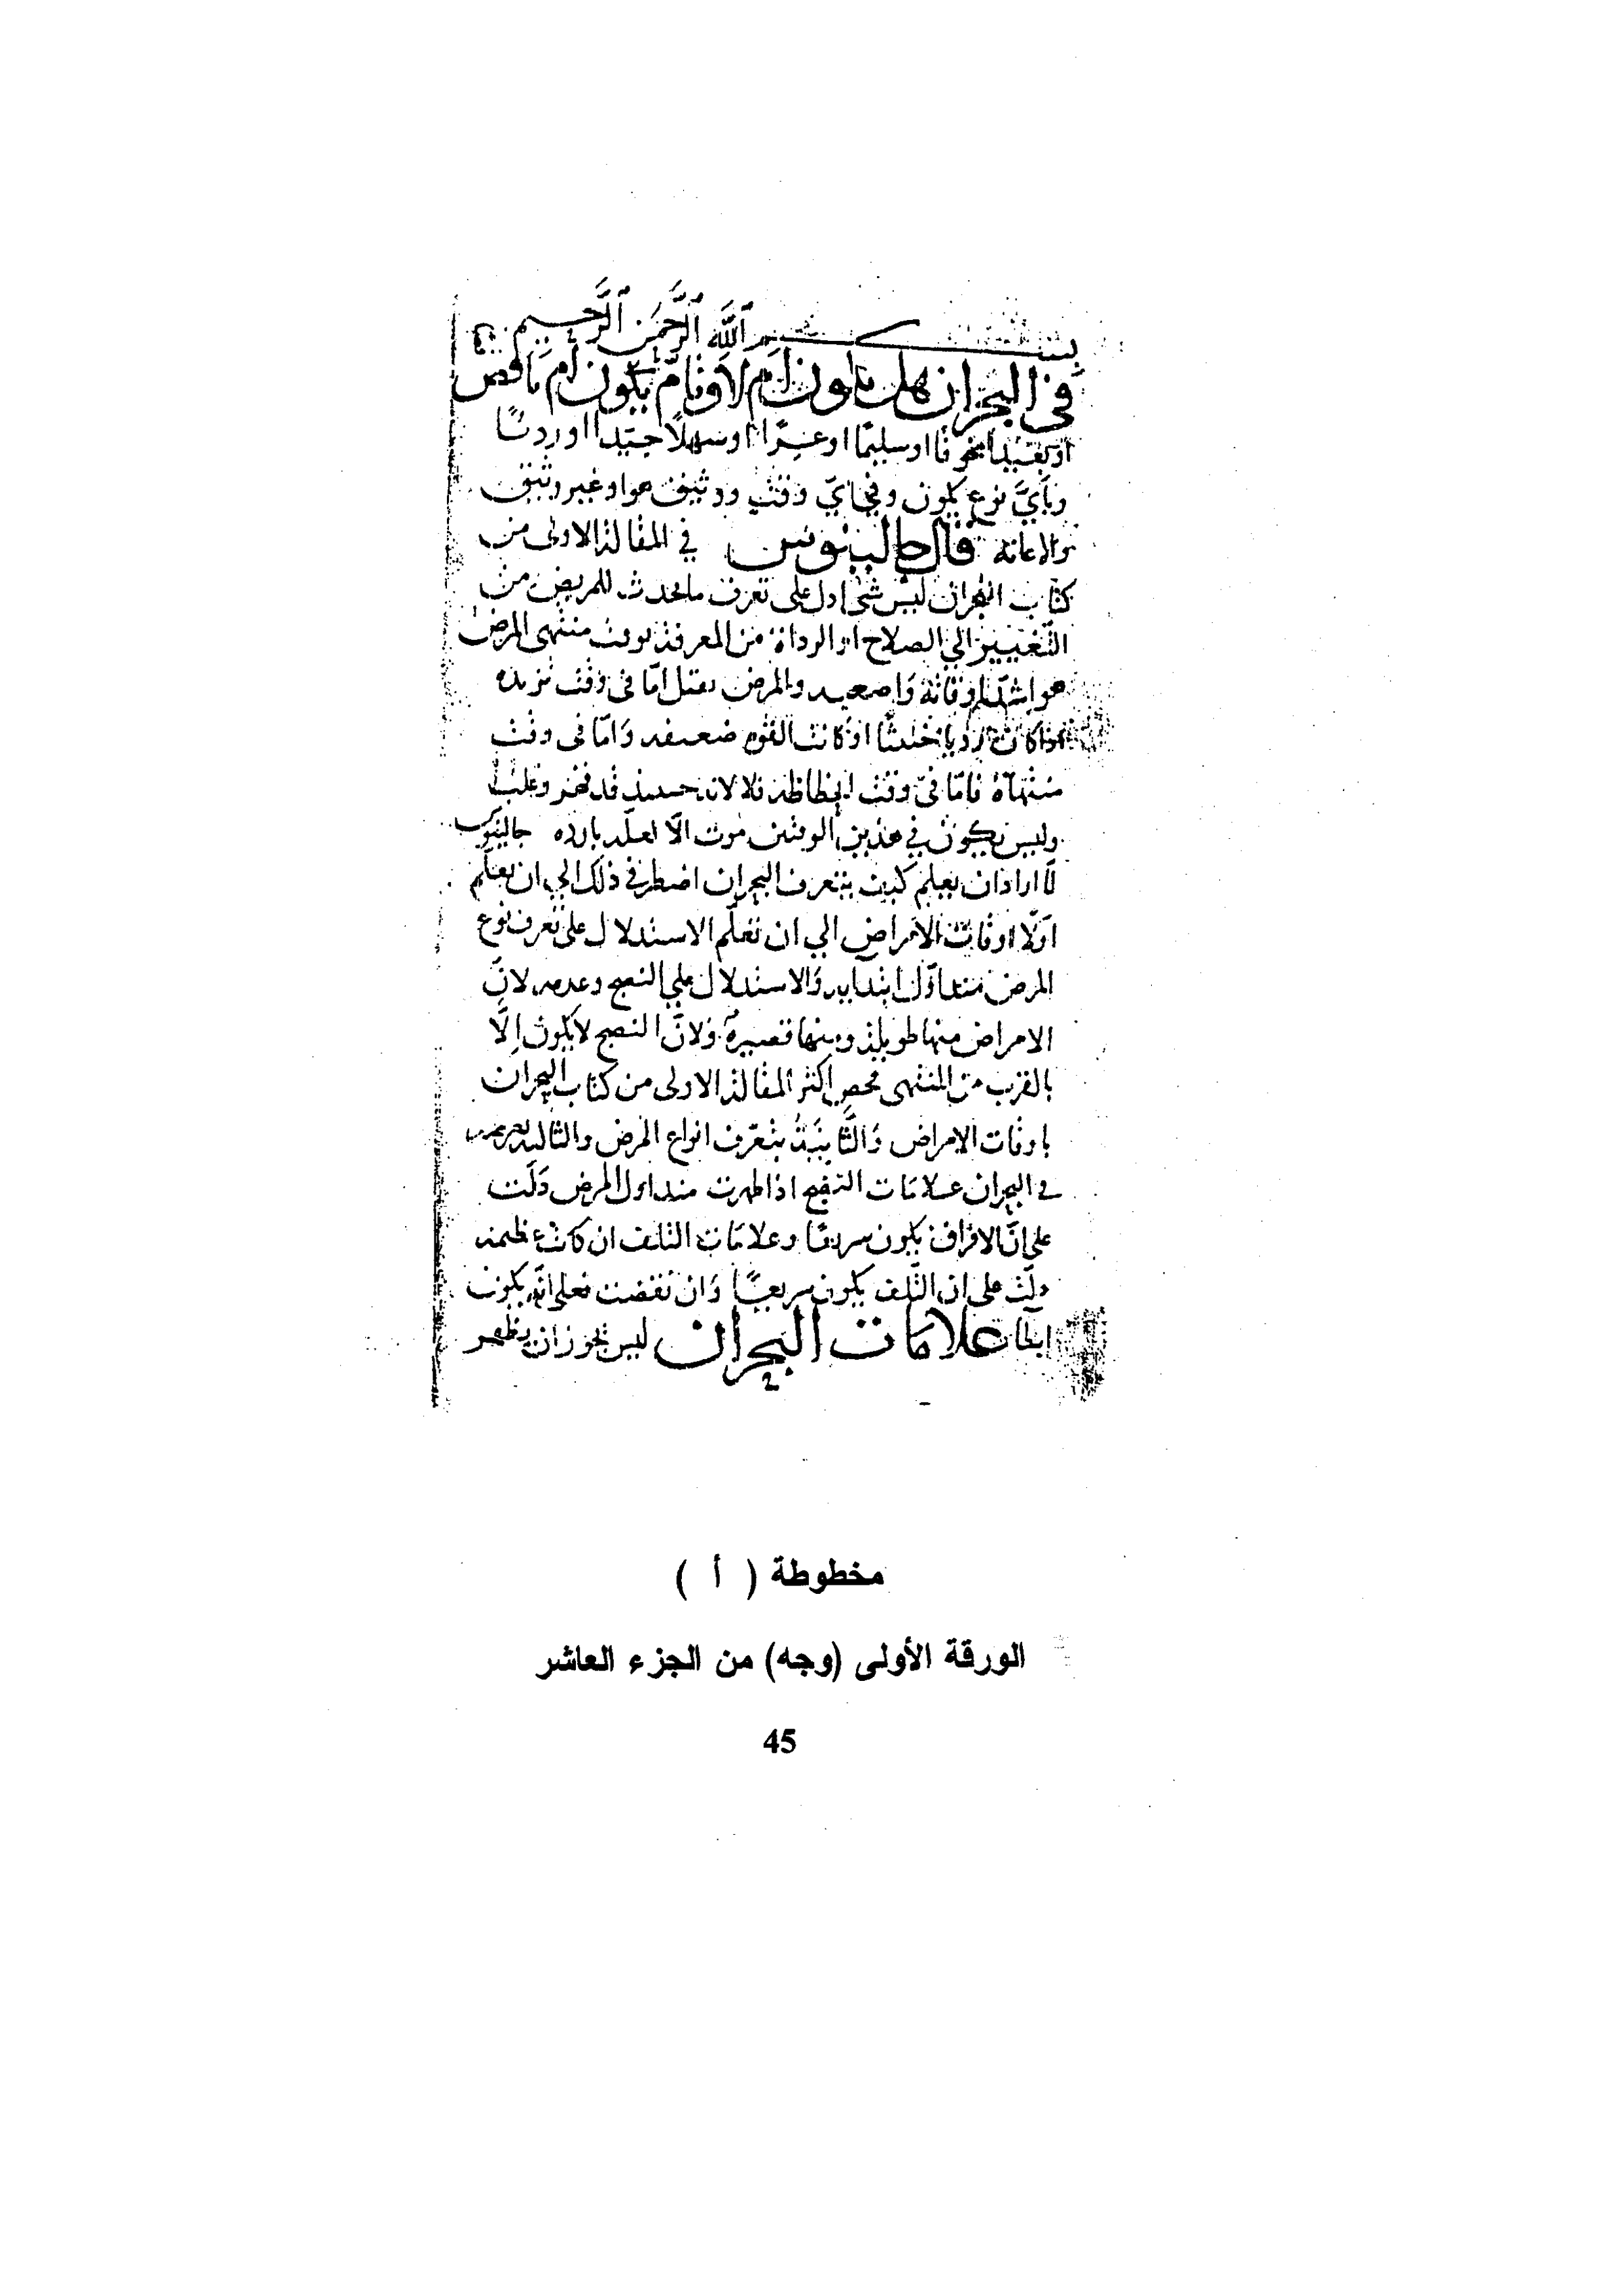 بسم الله الرحمن الرحيم
في البحران هل يكون ام لا وتام يكون ام ناقص
او بعيدا مخوفا او سليما او عسرا او سهلا جيدا او رديا
وبأيّ نوع يكون وفي ايّ وقت ووثيق هو او غير وثيق
والاعانة قال جالينوس في المقالة الاولى من
كتاب البحران ليس شئ ادل على تعرف ما يحدث للمريض من
التغيير الي الصلاح او الرداة من المعرفة بوقت منتهى المرض
هو اشد اوقاته واصعبه والمرض يقتل امّا فى وقت تزيده
اذا كان رديا خبيثا او كانت القوة ضعيفه وَامّا فى وقت
منتهاه فامّا في وقت انحطاطه فلا لانه حينيذ قد قهر وغلب
وليس يكون في هذين الوقتين موت الّا لعلّة بارده جالينوس
لمّا اراد ان يعلم كيف يتعرف البحران اضطر في ذلك الي ان يعلّم
اوّلا اوقات الامراض الي ان تعلّم الاستدلال على تعرف نوع
المرض منذ اوّل ابتدايه والاستدلال علي النضج وعدمه لانّ
الامراض منها طويلة ومنها قصيرة ولانّ النضج لا يكون إلّا
بالقرب من المنتهى اكثر المقالة الاولى من كتاب البحران
باوقات الامراض وَالثّانِيَة بتعرّف انواع المرض والثالثة
في البحران علامات النضج اذا ظهرت منذ اول المرض دَلّت
على انّ الافراق يكون سريعًا وعلامات التلف ان كانت عظيمة
دلّت على ان التّلف يكون سريعًا وَان نقصت فعلى انّه يكون
ابطا علامات البحران ليس يجوز ان يظهر
مخطوطة ( أ )
الورقة الأولى (وجه) من الجزء العاشر
45